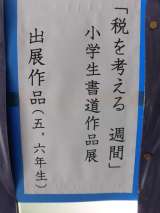 「税を考える 週間」
小学生書道作品展
出展作品(五、六年生)